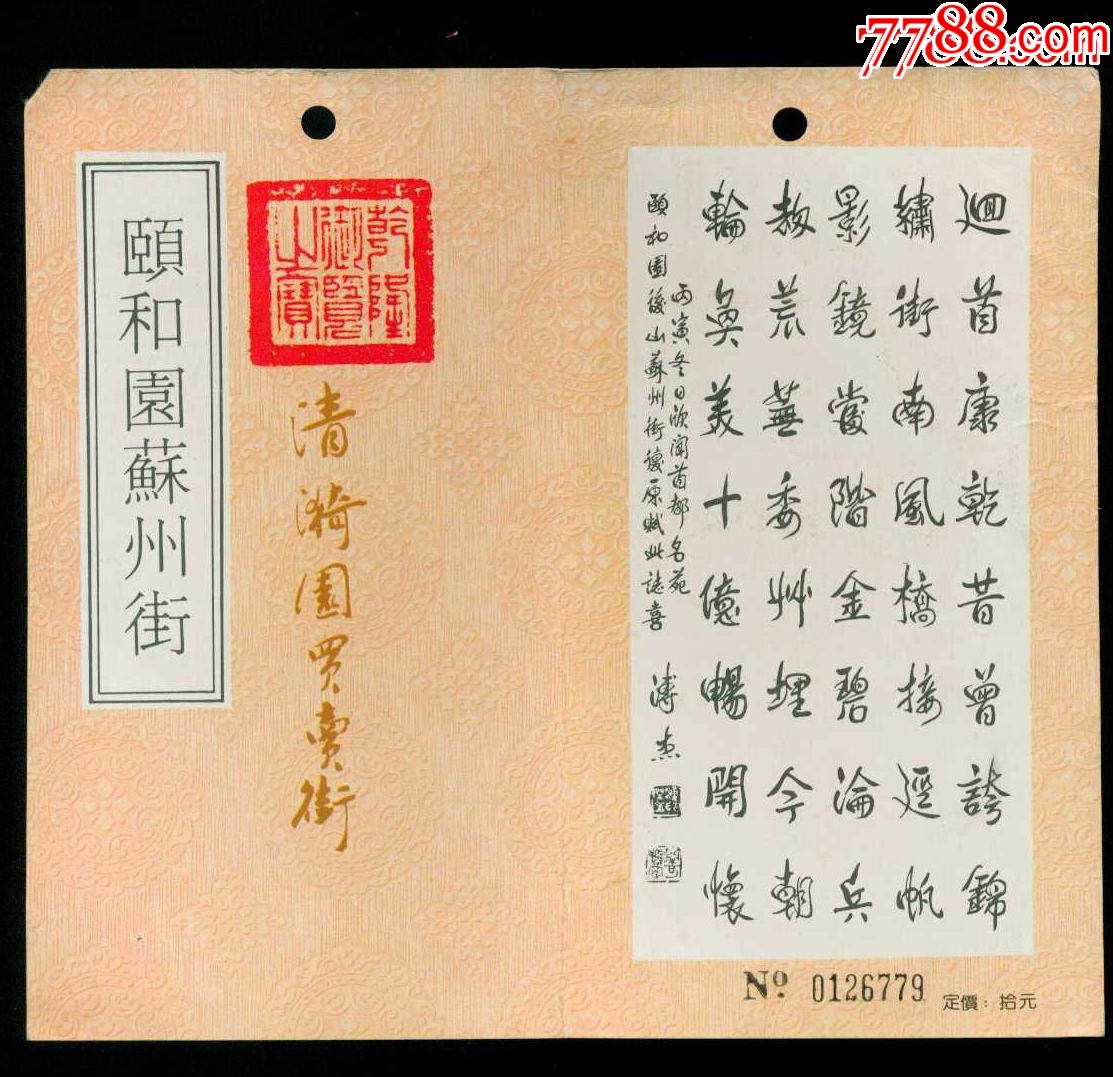 7788.com
頤和園蘇州街
乾隆
御覽
之寶
清漪園買賣街
迴首康乾昔曾誇錦
繡街南風橋接逕帆
影鏡當階金碧淪兵
劫荒蕪委艸埋今朝
輪奐美十億暢開懷
丙寅冬日欣聞首都名苑
頤和園後山蘇州街復原賦此誌喜 溥杰
Nº. 0126779
定價：拾元